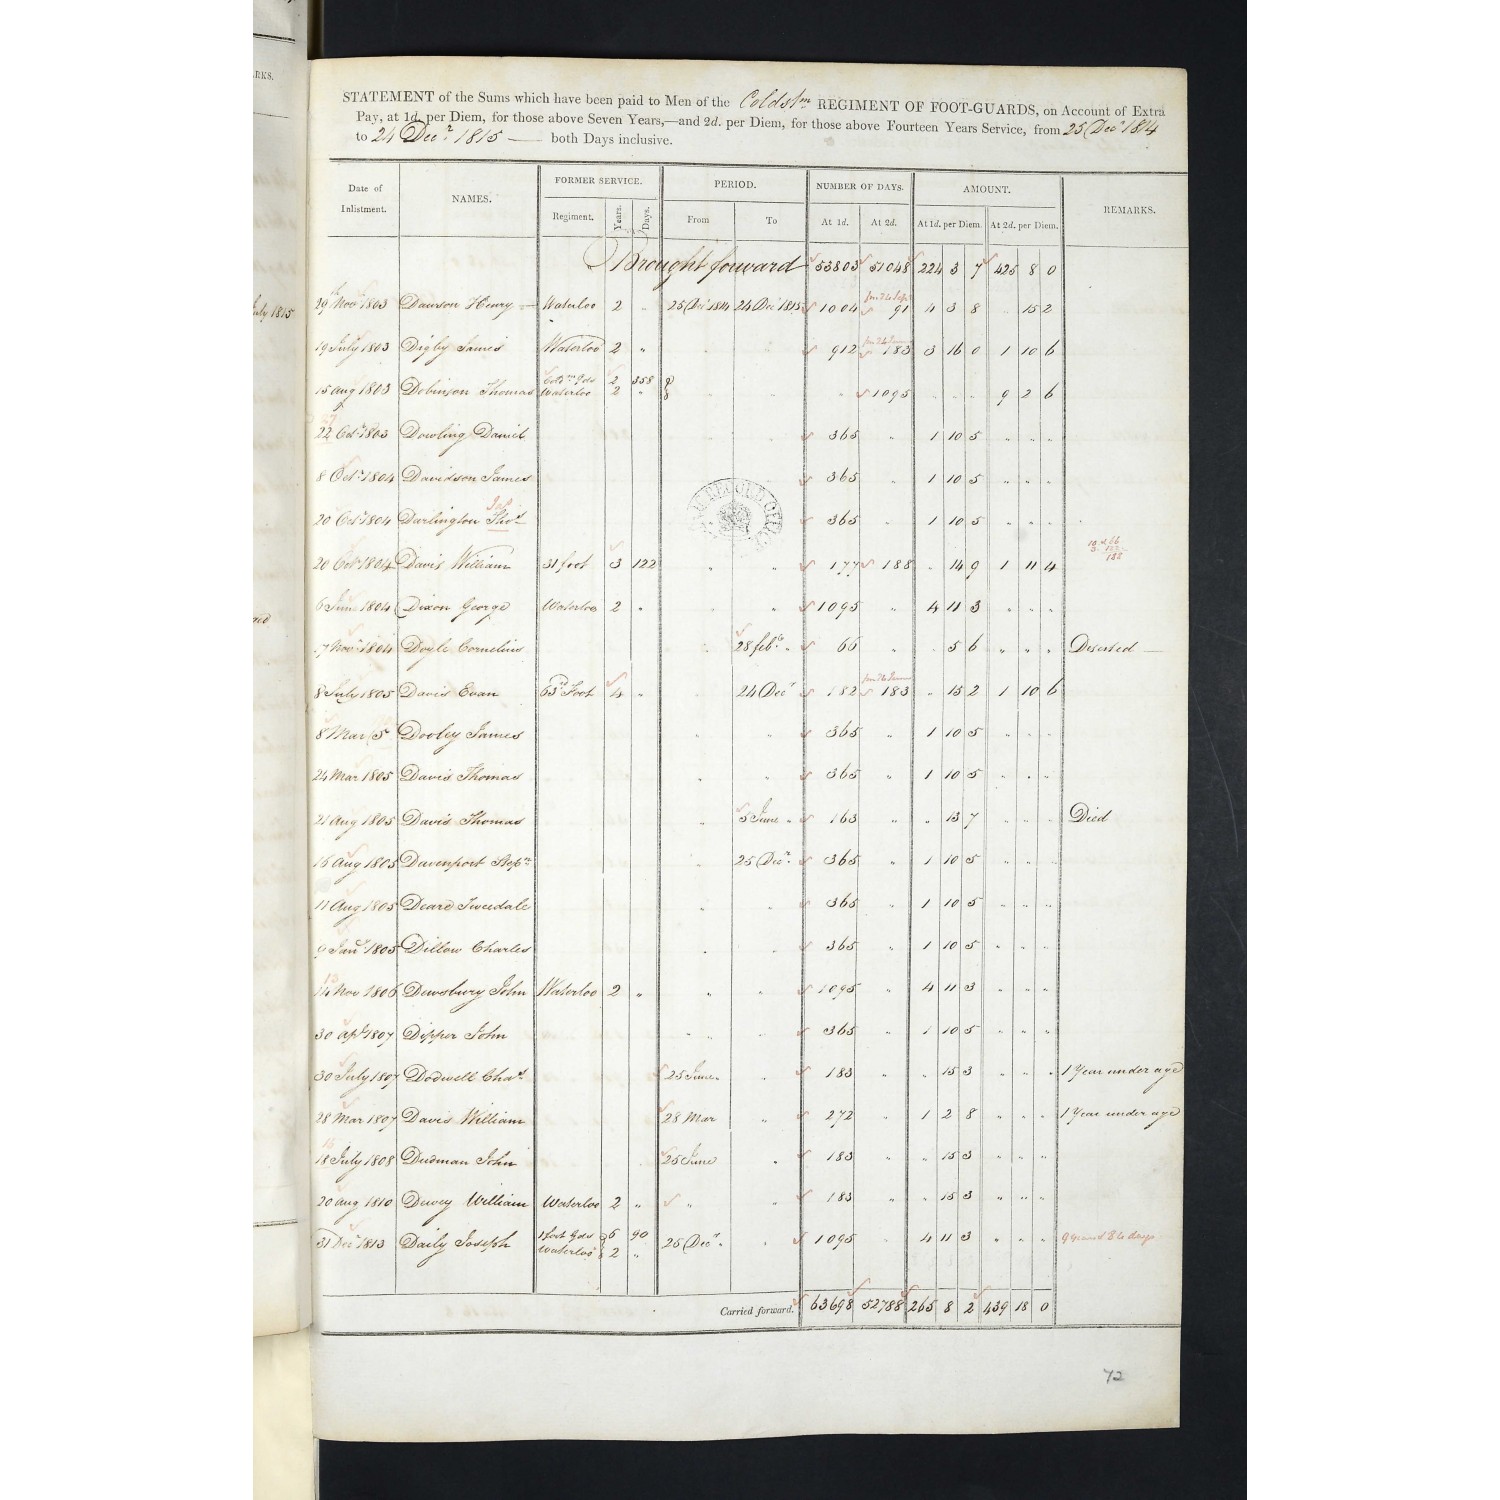 RKS.
July 1815
STATEMENT of the Sums which have been paid to Men of the Coldstm REGIMENT OF FOOT-GUARDS, on Account of Extra
Pay, at 1d. per Diem, for those above Seven Years,—and 2d. per Diem, for those above Fourteen Years Service, from 25 Decr 1814
to 24 Decr 1815 — both Days inclusive.
Date of Inlistment. NAMES. FORMER SERVICE. PERIOD. NUMBER OF DAYS. AMOUNT. REMARKS.
Regiment. Years. Days. From To At 1d. At 2d. At 1d. per Diem. At 2d. per Diem.
Brought forward 53803 51048 224 3 7 425 8 0
29 Novr 1803 Dawson Henry — Waterloo 2 " 25 Decr 1814 24 Decr 1815 1004 91 4 3 8 " 15 2
19 July 1803 Digby James Waterloo 2 " 912 183 3 16 0 1 10 6
15 Aug 1803 Dobinson Thomas Coldm Gds 2 358
Waterloo 2 " " 1095 " " " 9 2 6
22 Octr 1803 Dowling Daniel 365 " 1 10 5 " " "
8 Octr 1804 Davidson James 365 " 1 10 5 " " "
20 Octr 1804 Darlington Thos Jas 365 " 1 10 5 " " "
20 Octr 1804 Davis William 31 foot 3 122 " " 177 188 " 14 9 1 11 4
6 June 1804 Dixon George Waterloo 2 " " " 1095 " 4 11 3 " " "
7 Novr 1804 Doyle Cornelius 28 feby " 66 " " 5 6 " " " Deserted —
8 July 1805 Davis Evan 63rd Foot 4 " 24 Decr 182 183 " 15 2 1 10 6
8 Mar /5 Dooley James " " 365 " 1 10 5 " " "
24 Mar 1805 Davis Thomas " " 365 " 1 10 5 " " "
21 Aug 1805 Davis Thomas " 5 June " 163 " " 13 7 " " " Died
16 Aug 1805 Davenport Stepn " 25 Decr 365 " 1 10 5 " " "
11 Aug 1805 Deare Tweedale " " 365 " 1 10 5 " " "
9 Jany 1805 Dillow Charles " " 365 " 1 10 5 " " "
13
14 Nov 1806 Dewsbury John Waterloo 2 " " " 1095 " 4 11 3 " " "
30 Apl 1807 Dipper John " " " 365 " 1 10 5 " " "
30 July 1807 Dodwell Chas 25 June " " 183 " " 15 3 " " " 1 Year under age
28 Mar 1807 Davis William 28 Mar " 272 " 1 2 8 " " " 1 Year under age
16
18 July 1808 Dudman John 25 June " 183 " " 15 3 " " "
20 Aug 1810 Dewey William Waterloo 2 " " " 183 " " 15 3 " " "
31 Decr 1813 Daily Joseph 1 foot Gds 6 90
Waterloo 2 " 25 Decr " " 1095 " 4 11 3 " " "
Carried forward. 63698 52788 265 8 2 439 18 0
72